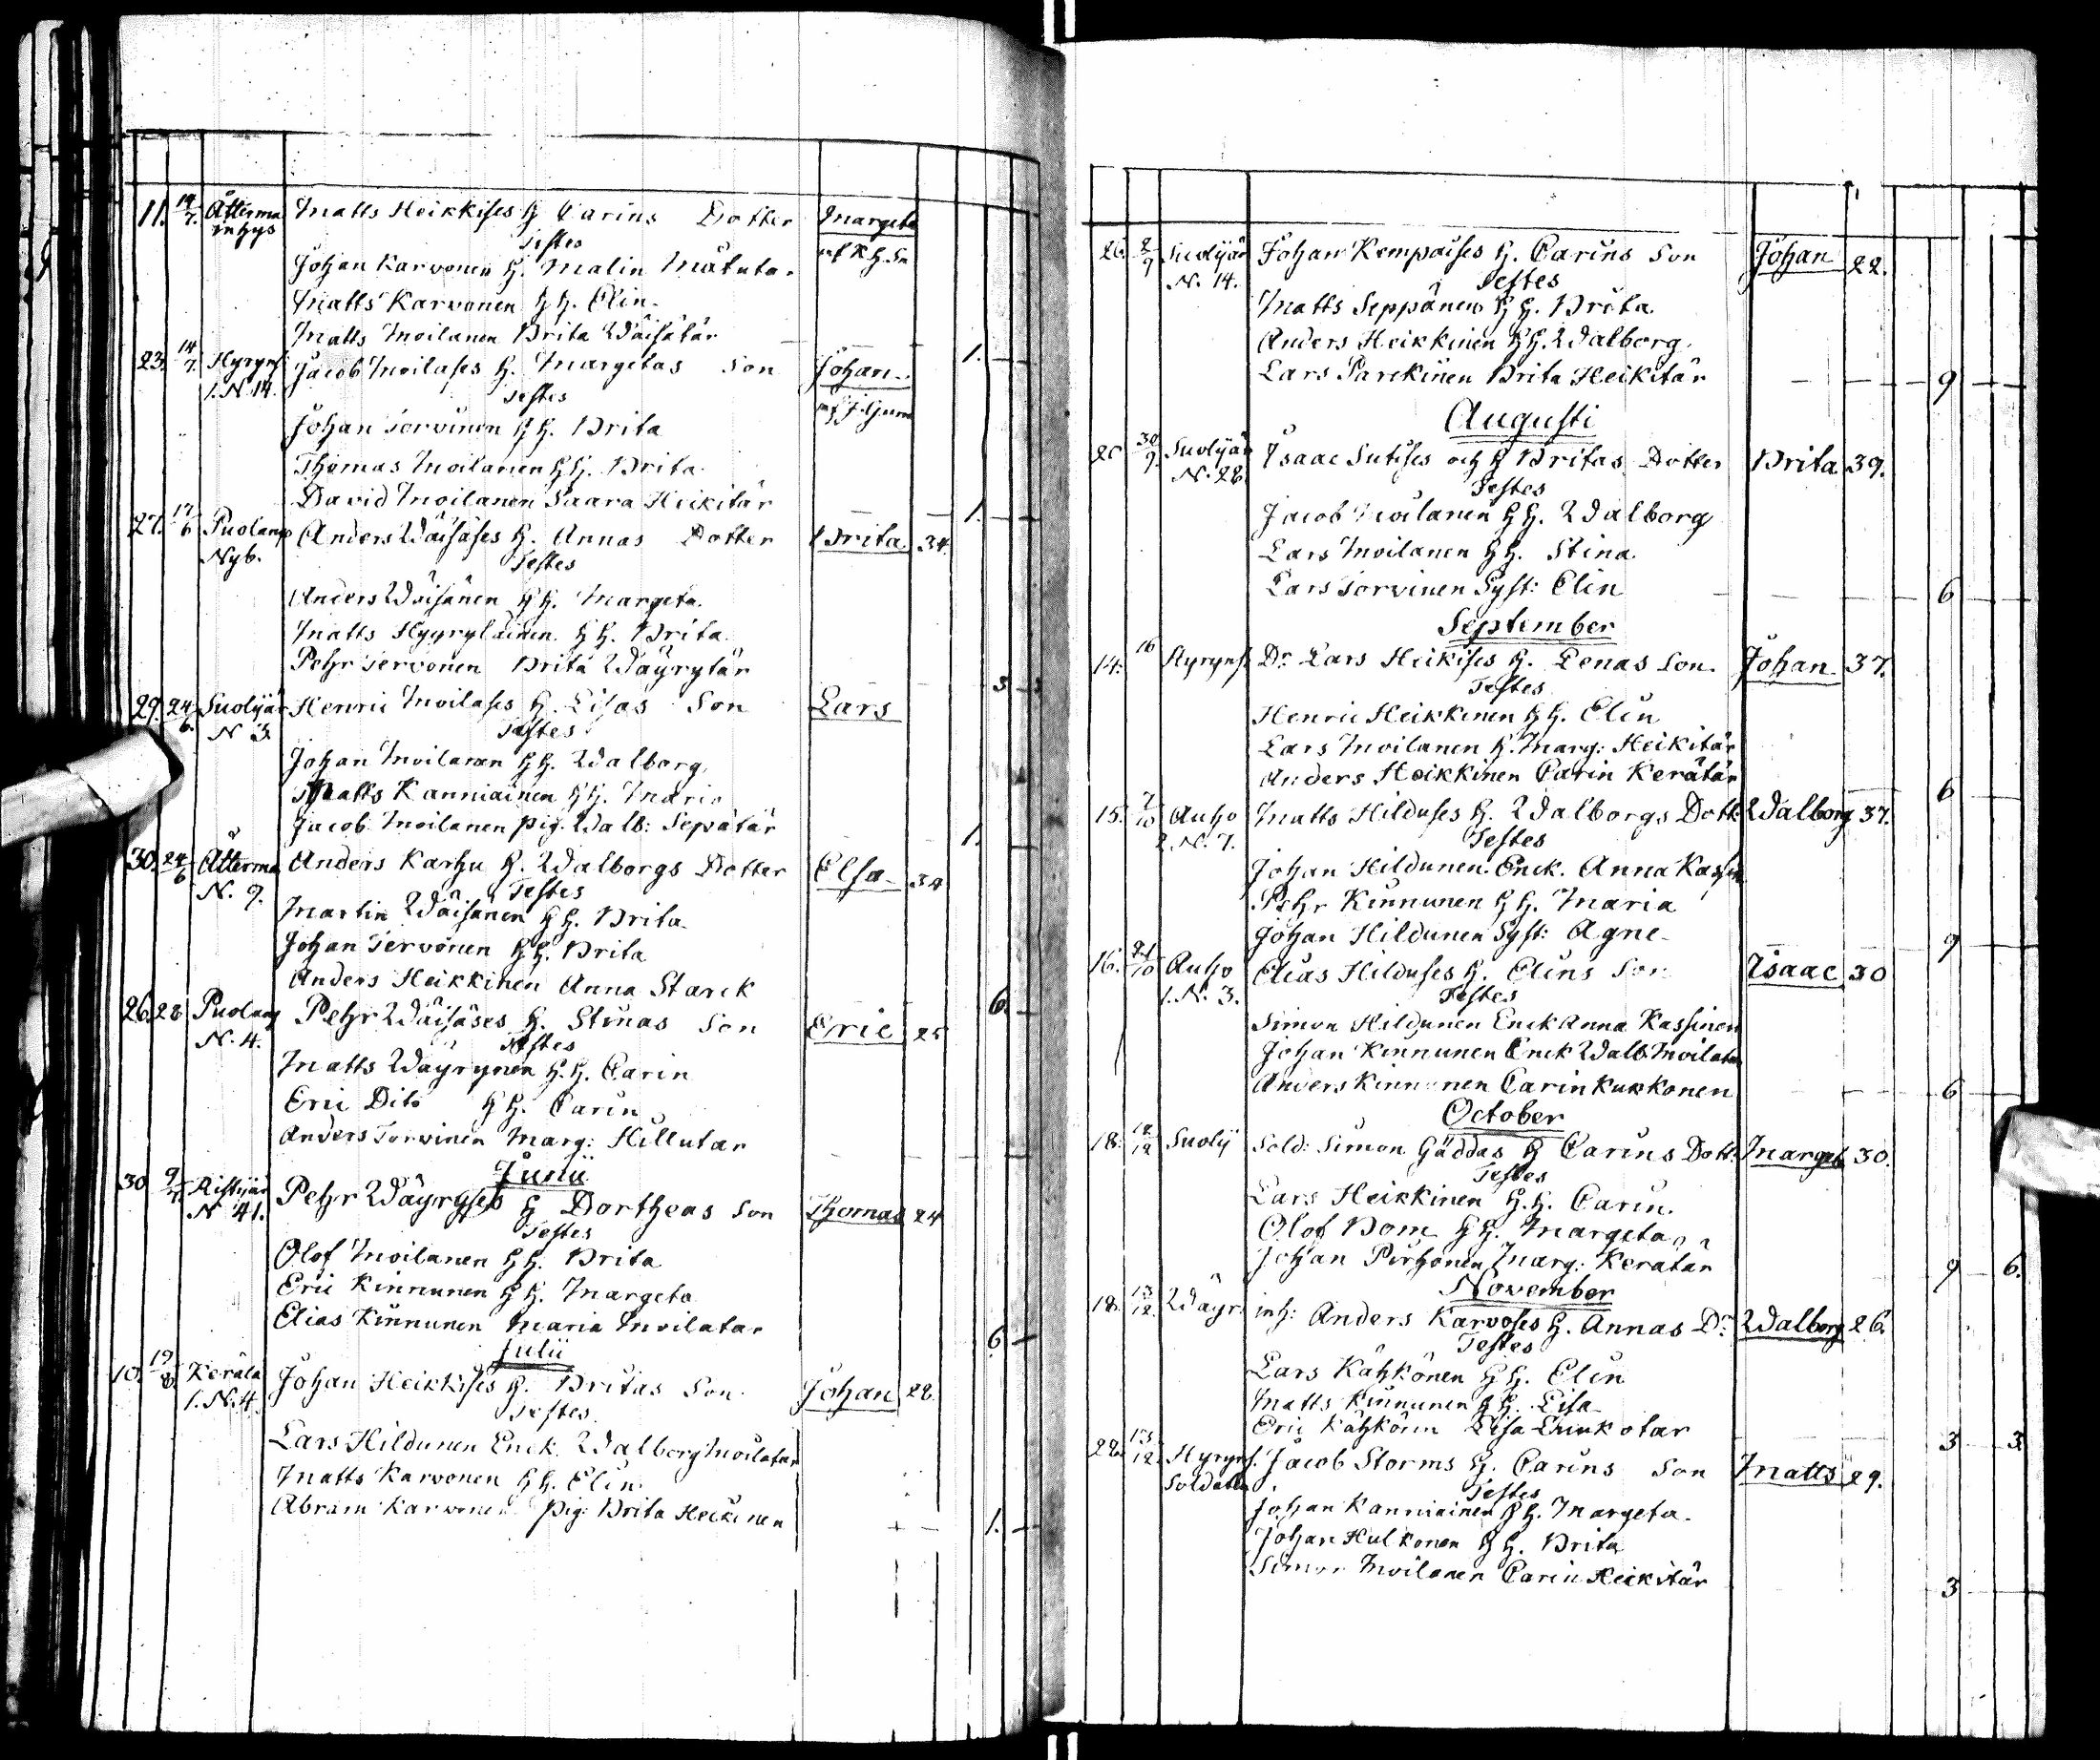 11. 14/7. Åtterma Matts Heikkises h Carins Dotter Margeta
inhys Testes
Johan Karvonen h. Malin Mätutar
Matts Karvonen h h. Elin.
Matts Moilanen Brita Wäisätär 1.
23. 14/7. Hyryns Jacob Moilases h. Margetas Son Johan
1. N. 14. Testes
Johan Torvinen h h. Brita
Thomas Moilanen h h. Brita
David Moilanen Saara Heikitär 1.
27. 17/6 Puolang Anders Wäisäses h. Annas Dotter Brita 34.
Nyb. Testes
Anders Wäisänen h h. Margeta.
Matts Hyyryläinen h h. Brita
Pehr Tervonen Brita Wäyrytär 3
29. 24/6. Suolijär Henric Moilases h. Lisas Son Lars
N 3. Testes
Johan Moilanen h h. Walborg,
Matts Kanniainen h h. Maria
Jacob Moilanen pig. Walb: Sepätär 1.
30. 24/6 Åtterma Anders Karhu h. Walborgs Dotter Elsa 34
N. 9. Testes
Martin Wäisänen h h. Brita
Johan Tervonen h h. Brita
Anders Heikkinen Anna Starck 6.
26. 28 Puolang Pehr Wäisäses h. Stinas Son Eric 25
N. 4. Testes
Matts Wäyrynen h. h. Carin
Eric Dito h h. Carin
Anders Torvinen Marg: Hillutar
Junii
30 9/7 Ristijär Pehr Wäyryses h Dortheas Son Thomas 24
N 41. Testes
Olof Moilanen h h. Brita
Eric Kinnunen h h. Margeta
Elias Kinnunen Maria Moilatar 6
Julii
10. 19/8. Kerälä Johan Heikkises h. Britas Son Johan 28.
1. N. 4. Testes
Lars Hildunen Enck. Walborg Moilatar
Matts Karvonen h h. Elin
Abram Karvonen pig. Brita Heikinen 1.
26. 2/9 Suolijär Johan Kempaises h. Carins Son Johan 22.
N. 14. Testes
Matts Seppänen h h. Brita
Anders Heikkinen h h. Walborg.
Lars Parckinen Brita Heikitär 9
Augusti
20 30/9. Suolijär Isaac Sutises och h Britas Dotter Brita 39.
N. 28. Testes
Jacob Moilanen h h. Walborg
Lars Moilanen h h. Stina
Lars Torvinen Syst: Elin 6
September
14. 16 Hyryns. Dr. Lars Heikises h. Lenas Son. Johan 37.
Testes
Henric Heikkinen h h. Elin
Lars Moilanen h. Marg: Heikitär
Anders Heikkinen Carin Kerätär 6
15. 7/10 Auho Matts Hilduses h. Walborgs Dott: Walborg 37.
2. N. 7. Testes
Johan Hildunen Enck. Anna Kassin
Pehr Kinnunen h h. Maria
Johan Hildunen Syst: Agne 9
16. 21/10 Auho Elias Hilduses h. Elins Son Isaac 30
1. N. 3. Testes
Simon Hildunen Enck Anna Kassinen
Johan Kinnunen Enck Walb. Moilatar
Anders Kinnunen Carin Kukkonen 6
October
18. 12/12 Suolij Sold: Simon Gäddas h Carins Dott: Marget 30.
Testes
Lars Heikkinen h. h. Carin.
Olof Bom h h. Margeta
Johan Pirhonen Marg: Kerätär 9 6.
November
18. 13/12. Wäyr. inh: Anders Karvoses h. Annas Dr. Walborg 26.
Testes
Lars Kähkönen h h. Elin
Matts Kinnunen h h. Lisa
Eric Kähkönen Lisa 3 3
22. 13/12. Hyryns. Jacob Storms h. Carins Son Matts 29.
Soldaten Testes
Johan Kanniainen h h. Margeta.
Johan Hulkonen h h. Brita
Simon Moilanen Carin Heikitär 3